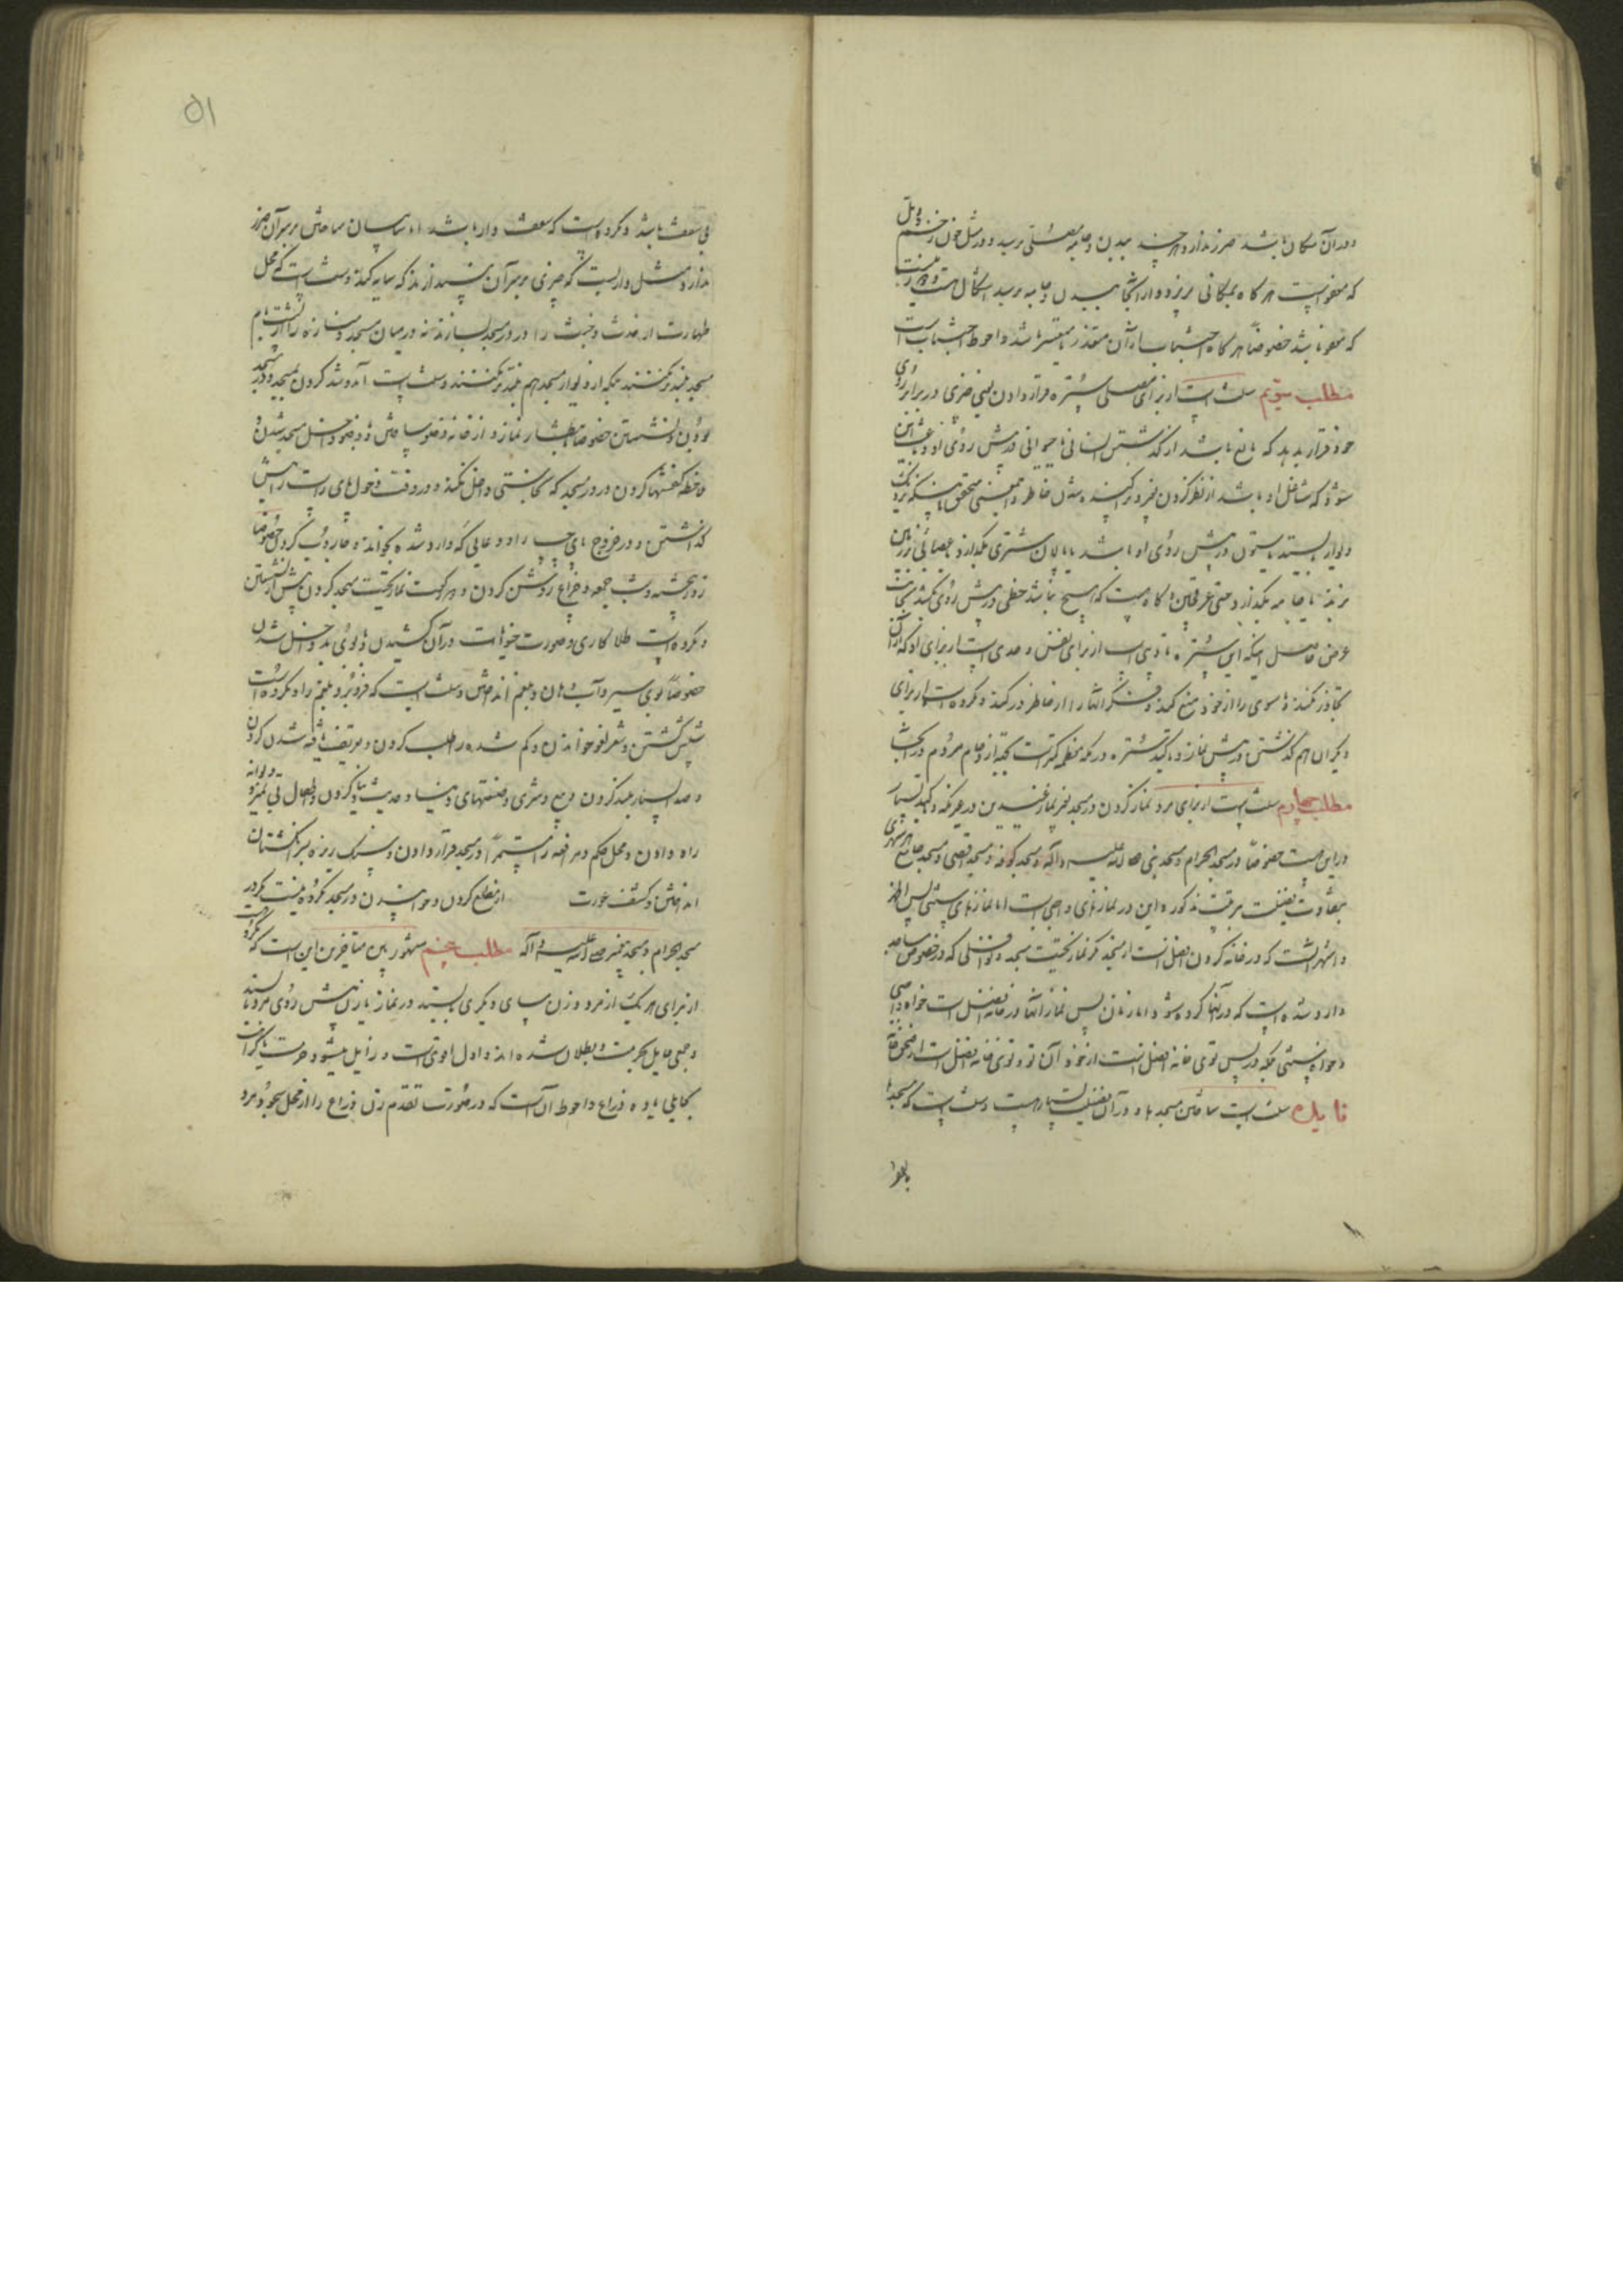 و در آن مکان باشد ضرر ندارد هر چند ببدن و جامه مصلی برسد و در مثل خون زخم و دمل
که معفو است هر گاه بمکانی بریزد و از آنجا ببدن و جامه برسد اشکال هست
که معفو باشد خصوصاً هر گاه اجتناب از آن متعذر یا متعسر باشد و احوط اجتناب است
مطلب سیّم سنت است از برای مصلی ستره قرار دادن یعنی چیزی در برابر روی
خود قرار بدهد که مانع باشد از گذشتن انسانی یا حیوانی در پیش روی او
شود که شاغل او باشد از نظر کردن
دیوار بایستد یا ستون در پیش روی او باشد یا پالان شتری بگذارد یا عصائی بر زمین
بزند یا جامه بگذارد حتی عرقچین و کلاه هست که هیچ نباشد خطی در پیش روی بکشد
غرض حاصل اینکه این ستره تادیب است از برای نفس و حدی است از برای او که از آن
تجاوز نکند تا سوی را از خود منع کند و فکر آنها را از خاطر در کند و مکروه است از برای
دیگران هم گذشتن در پیش نماز و تاکید ستره در مکه معظمه کمتر است بجهة ازدحام مردم در آنجا
مطلب چهارم سنت است از برای مرد نماز کردن در مسجد بغیر نماز عیدین در غیر مکه و تاکید بسیار
در این هست خصوصاً در مسجد الحرام و مسجد نبی صلی الله علیه و آله و مسجد کوفه و مسجد اقصی و مسجد جامع هر شهری
بتفاوت فضیلت بترتیب مذکور و این در نمازهای واجبی است اما نمازهای سنتی پس اظهر
و اشهر آنست که در خانه کردن افضل است از مسجد مگر نماز تحیت مسجد و نوافلی که در خصوص مساجد
وارد شده است که در آنها کرده شود و اما زنان پس نماز آنها در خانه افضل است خواه واجبی
و خواه سنتی بلکه در پس توی خانه افضل است از خود آن تو و توی خانه افضل است از صحن خانه
فایده سنت است ساختن مسجدها و در آن فضیلت بسیار هست و سنت است که مسجدها
بی سقف باشد و مکروه است که سقف دار باشد اما سایبان ساختن بر سر آن ضرر
ندارد مثل داربست که چیزی بر سر آن بیندازند که سایه کند و سنت است که محل
طهارت از حدث و خبث را در در مسجد بسازند نه در میان مسجد و مناره را از پشت بام
مسجد بلندتر نکنند بلکه از دیوار مسجد هم بلندتر نکنند و سنت است آمد و شد کردن بمسجد و در مسجد
بودن و نشستن خصوصاً بانتظار نماز و از خانه وضو ساختن و با وضو داخل مسجد شدن و
ملاحظه کفشها کردن در در مسجد که نجاستی داخل نکند و در وقت دخول پای راست را پیش
گذاشتن و در خروج پای چپ را و دعایی که وارد شده بخواند و جاروب کردن خصوصاً
روز پنجشنبه و شب جمعه و چراغ روشن کردن و دو رکعت نماز تحیت مسجد کردن پیش از نشستن
و مکروه است طلا کاری و صورت حیوانات در آن کشیدن و با بوی بد داخل شدن
خصوصاً بوی سیر و آب دهان و بلغم انداختن و سنت است که فرو برد بلغم را و مکروه است
شپش کشتن و شعر لغو خواندن و گم شده را طلب کردن و تعریف یافته شدن کردن
و صدا بسیار بلند کردن و بیع و شری و صنعتهای دنیا و حدیث دنیا کردن و اطفال بی تمیز و دیوانه
راه دادن و محل حکم و مرافعه را مستمراً در مسجد قرار دادن و سنگ ریزه بسر انگشتان
انداختن و کشف عورت از مقطع کردن و خوابیدن در مسجد مکروه نیست مگر در
مسجد الحرام و مسجد پیغمبر صلی الله علیه و آله مطلب پنجم مشهور بین متاخرین این است که مکروه است
از برای هر یک از مرد و زن مساوی دیگری بایستد در نماز یا زن پیش روی مرد بایستد
و جمعی قایل بحرمت و بطلان شده‌اند و اول اقوی است و زایل میشود حرمت یا کراهت
بحایلی یا ده ذراع و احوط آن است که در صورت تقدم زن ذراع را از محل سجود مرد